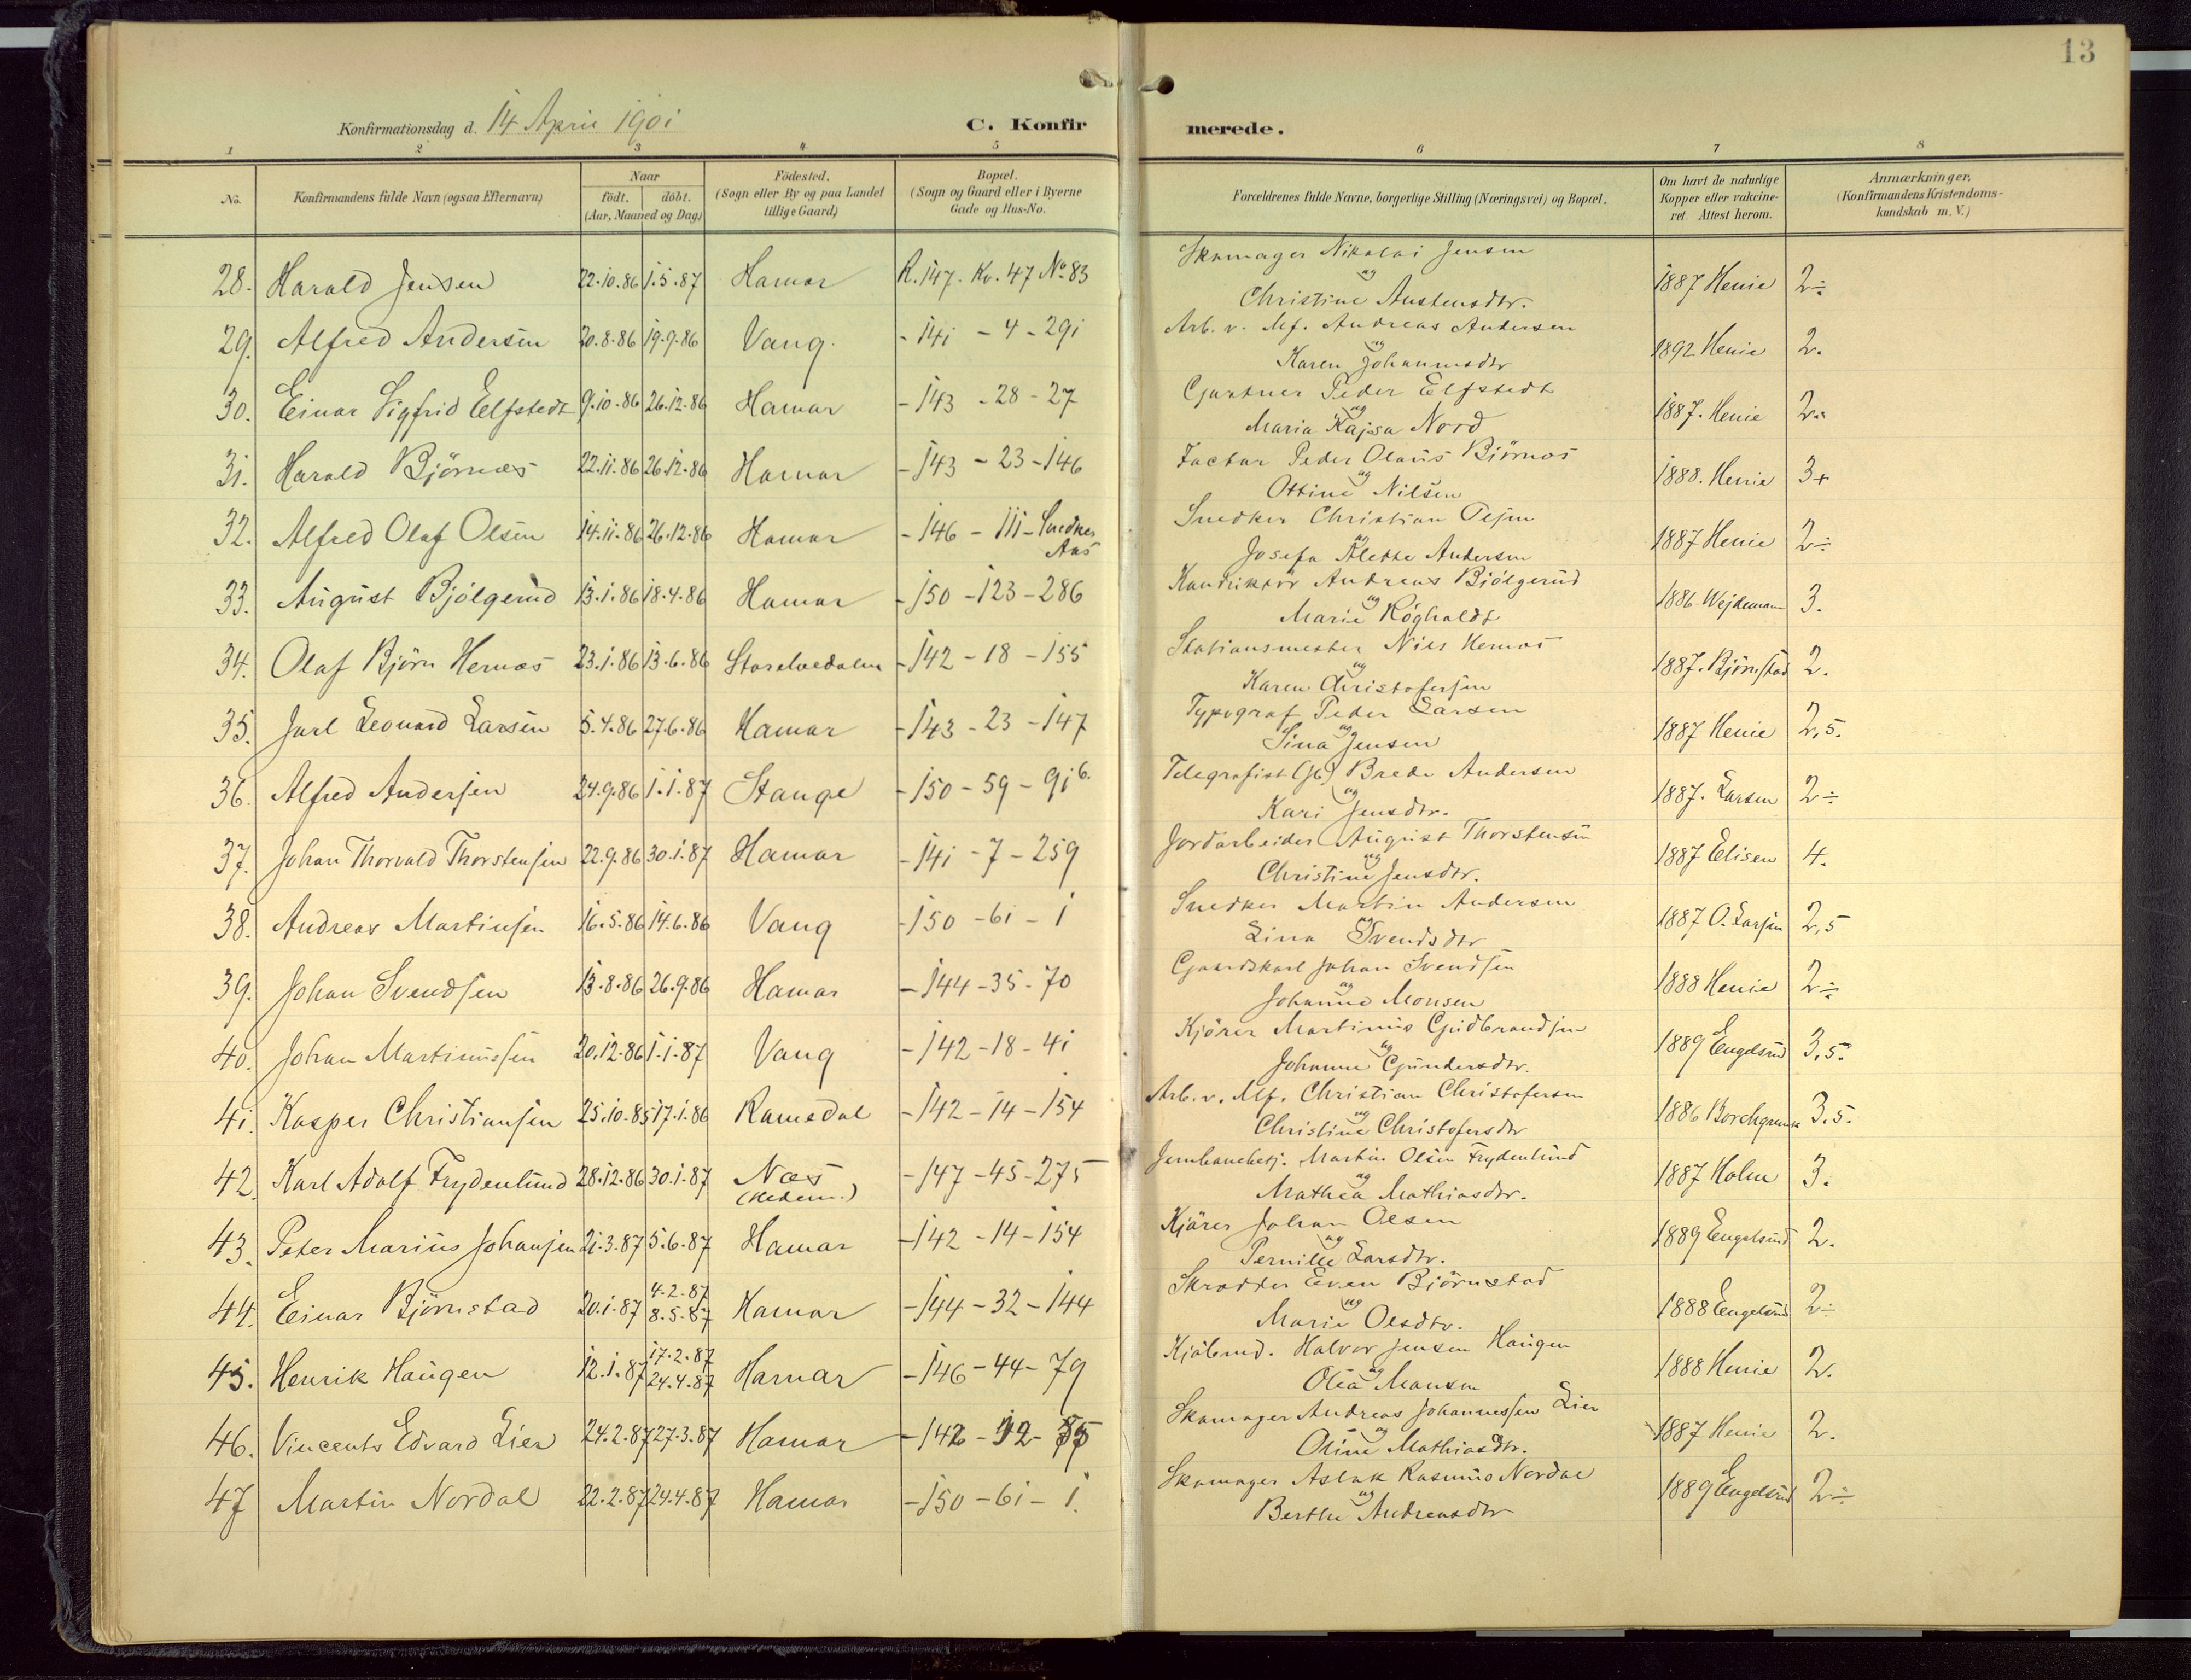 13
Konfirmationsdag d. 14 April 1901
C. Konfirmerede.
1 2 3 4 5 6 7 8
No. | Konfirmandens fulde Navn (ogsaa Efternavn) | Naar födt. döbt. (Aar, Maaned og Dag.) | Födested. (Sogn eller By og paa Landet tillige Gaard) | Bopæl. (Sogn og Gaard eller i Byerne Gade og Hus-No. | Forældrenes fulde Navne, borgerlige Stilling (Næringsvei) og Bopæl. | Om havt de naturlige Kopper eller vakcineret. Attest herom. | Anmærkninger. (Konfirmandens Kristendomskundskab m. V.)
28. Harald Jensen 22.10.86 1.5.87 Hamar R.147. Kv. 47 No. 83 Skomager Nikolai Jensen og Christine Austensdtr. 1887 Henie 2÷
29. Alfred Andersen 20.8.86 19.9.86 Vang. - 141 - 4 - 291 Arb. v. Mf. Andreas Andersen og Karen Johannesdtr 1892 Henie 2.
30. Einar Sigfrid Elfstedt 9.10.86 26.12.86 Hamar - 143 - 28 - 27 Gartner Peder Elfstedt og Maria Kajsa Nord 1887. Henie 2.
31. Harald Björnæs 22.11.86 26.12.86 Hamar - 143 - 23 - 146 Factor Peder Olaus Björnæs og Ottine Nilsen 1888. Henie 3+
32. Alfred Olaf Olsen 14.11.86 26.12.86 Hamar - 146 - 111 - Snedker Aas Snedker Christian Olsen og Josefa Alette Andersen 1887 Henie 2÷
33. August Bjölgerud 13.1.86 18.4.86 Hamar - 150 - 123 - 286 Konduktör Andreas Bjölgerud og Marie Röghaldt 1886 Wejdemann 3.
34. Olaf Björn Hernæs 23.1.86 13.6.86 Storelvedalen - 142 - 18 - 155 Stationsmester Nils Hernæs og Karen Christofersen 1887. Björnstad 2.
35. Jarl Leonard Larsen 5.4.86 27.6.86 Hamar - 143 - 23 - 147 Typograf Peder Larsen og Sina Jensen 1887 Henie 2,5.
36. Alfred Andersen 24.9.86 1.1.87 Stange - 150 - 59 - 91 6. Telegrafist (Jb) Brede Andersen og Kari Jensdtr. 1887. Larsen 2÷
37. Johan Thorvald Thorstensen 22.9.86 30.1.87 Hamar - 141 - 7 - 259 Jordarbeider August Thorstensen og Christine Jensdtr. 1887 Elisen 4.
38. Andreas Martinsen 16.5.86 14.6.86 Vang - 150 - 61 - 1 Snedker Martin Andersen og Lina Svendsdtr 1887 O. Larsen 2,5
39. Johan Svendsen 13.8.86 26.9.86 Hamar - 144 - 35 - 70 Gaardskarl Johan Svendsen og Johanne Monsen 1888 Henie 2÷
40. Johan Martinussen 20.12.86 1.1.87 Vang - 142 - 18 - 41 Kjörer Martinus Gudbrandsen og Johanne Gundersdtr. 1889 Engelsrud 3,5.
41. Kasper Christiansen 25.10.85 17.1.86 Romedal - 142 - 14 - 154 Arb. v. Mf. Christian Christofersen og Christine Christofersdtr 1886 Borchgrevink 3.5.
42. Karl Adolf Frydenlund 28.12.86 30.1.87 Næs (Hedem.) - 147 - 45 - 275 Jernbanebetj. Martin Olsen Frydenlund og Mathea Mathiasdtr. 1887 Holm 3.
43. Peter Marius Johansen 21.3.87 5.6.87 Hamar - 142 - 14 - 154 Kjörer Johan Olsen og Pernille Larsdtr. 1889 Engelsrud 2.
44. Einar Björnstad 20.1.87 4.2.87 8.5.87 Hamar - 144 - 32 - 144 Skrædder Even Björnstad og Marie Olsdtr. 1888 Engelsrud 2÷
45. Henrik Haugen 12.1.87 17.2.87 24.4.87 Hamar - 146 - 44 - 79 Kjöbmd. Halvor Jensen Haugen og Olea Monsen 1888 Henie 2.
46. Vincents Edvard Lier 24.2.87 27.3.87 Hamar - 142 - 12 - Skomager Andreas Johannessen Lier og Oline Mathiasdtr. 1887 Henie 2.
47 Martin Nordal 22.2.87 24.4.87 Hamar - 150 - 61 - 1. Skomager Aslak Rasmus Nordal og Berthe Andreasdtr 1889 Engelsrud 2÷